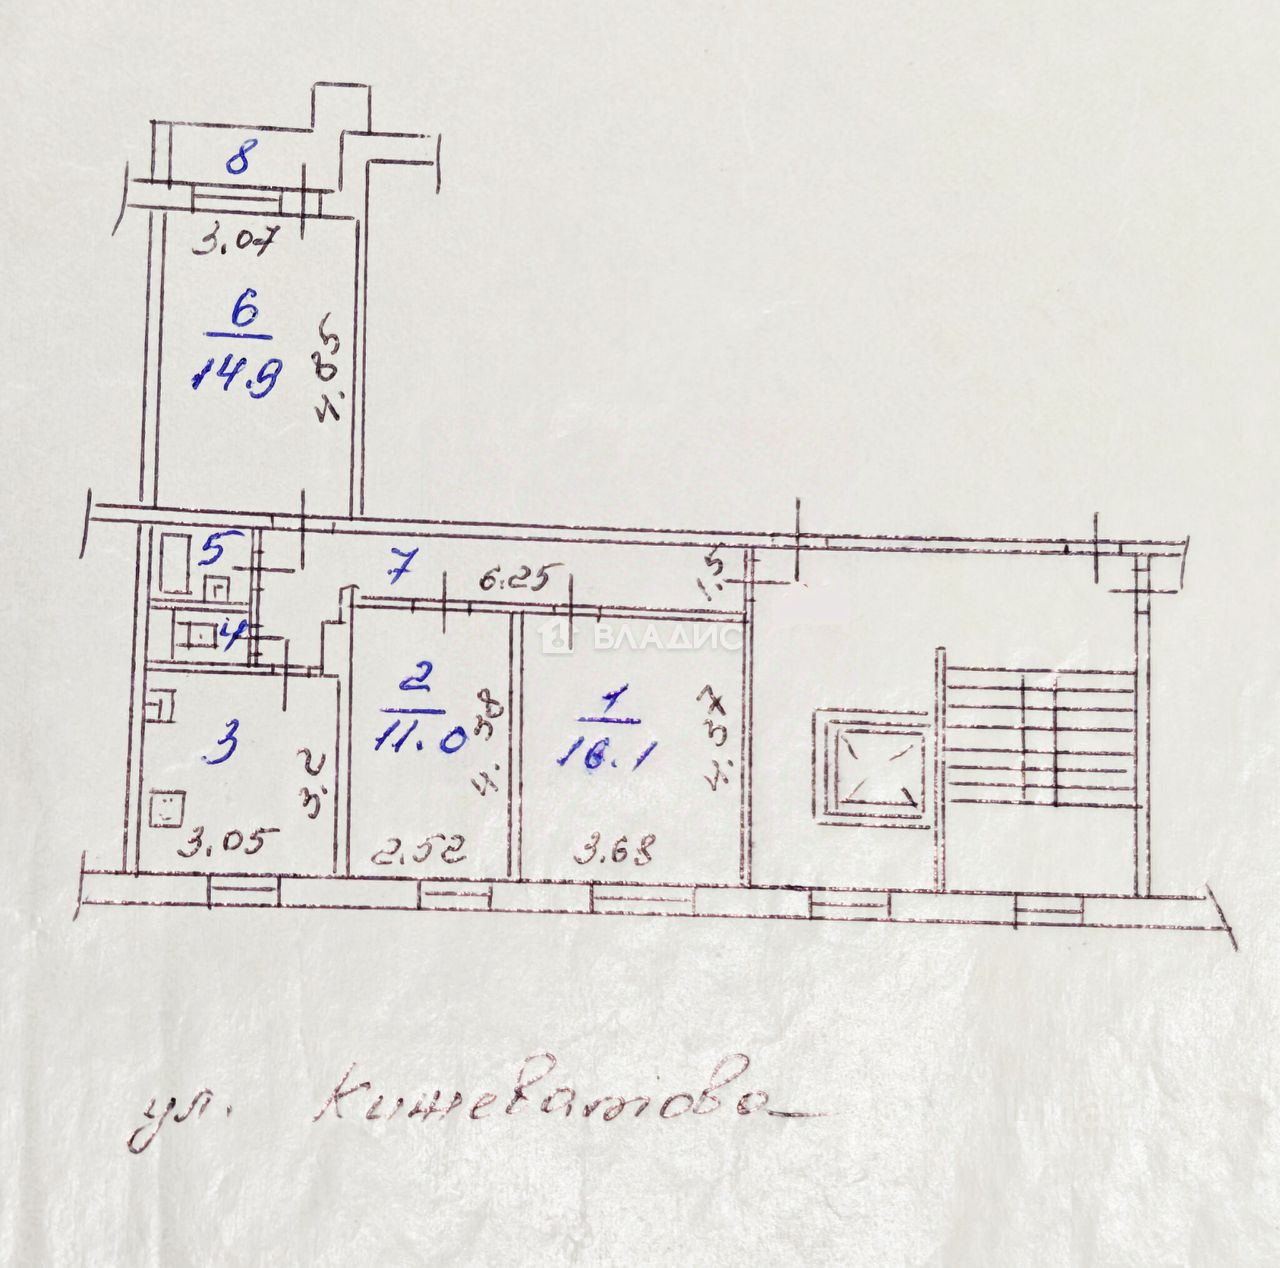 8
3.07
6
14.9
4.85
5
7
6.25
1.5
4
ВЛАДИС
2
11.0
4.38
1
16.1
4.37
3
3.2
3.05
2.52
3.69
ул. Кижеватова